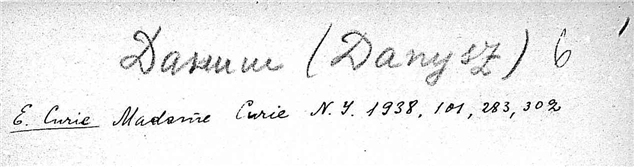 Даныш (Danysz) 6
E. Curie Madame Curie N.Y. 1938, 101, 283, 302